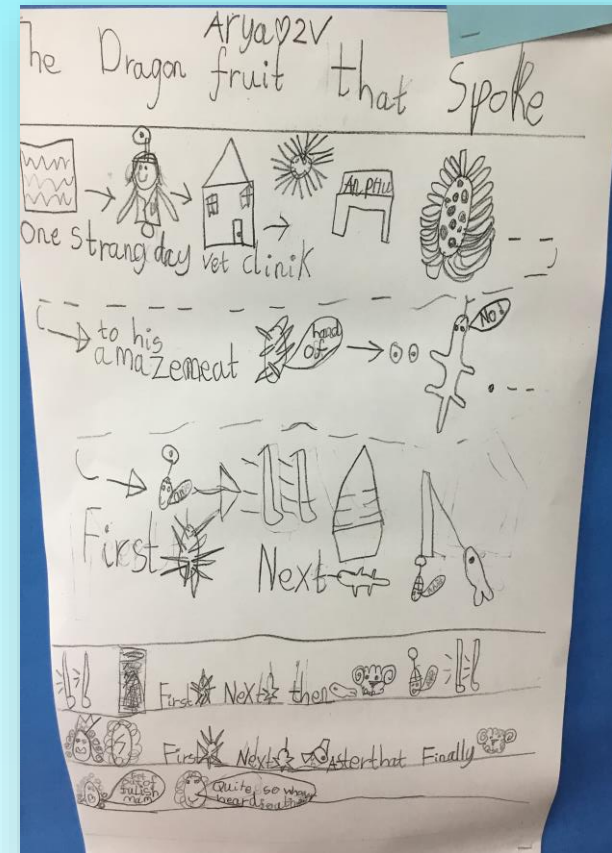 Arya 2V
The Dragon fruit that Spoke
An phu
one strang day vet clinik
No!
to his
amazemeat
hand
of
First
Next
First Next then
First Next Asterthat Finally
Quite, so who